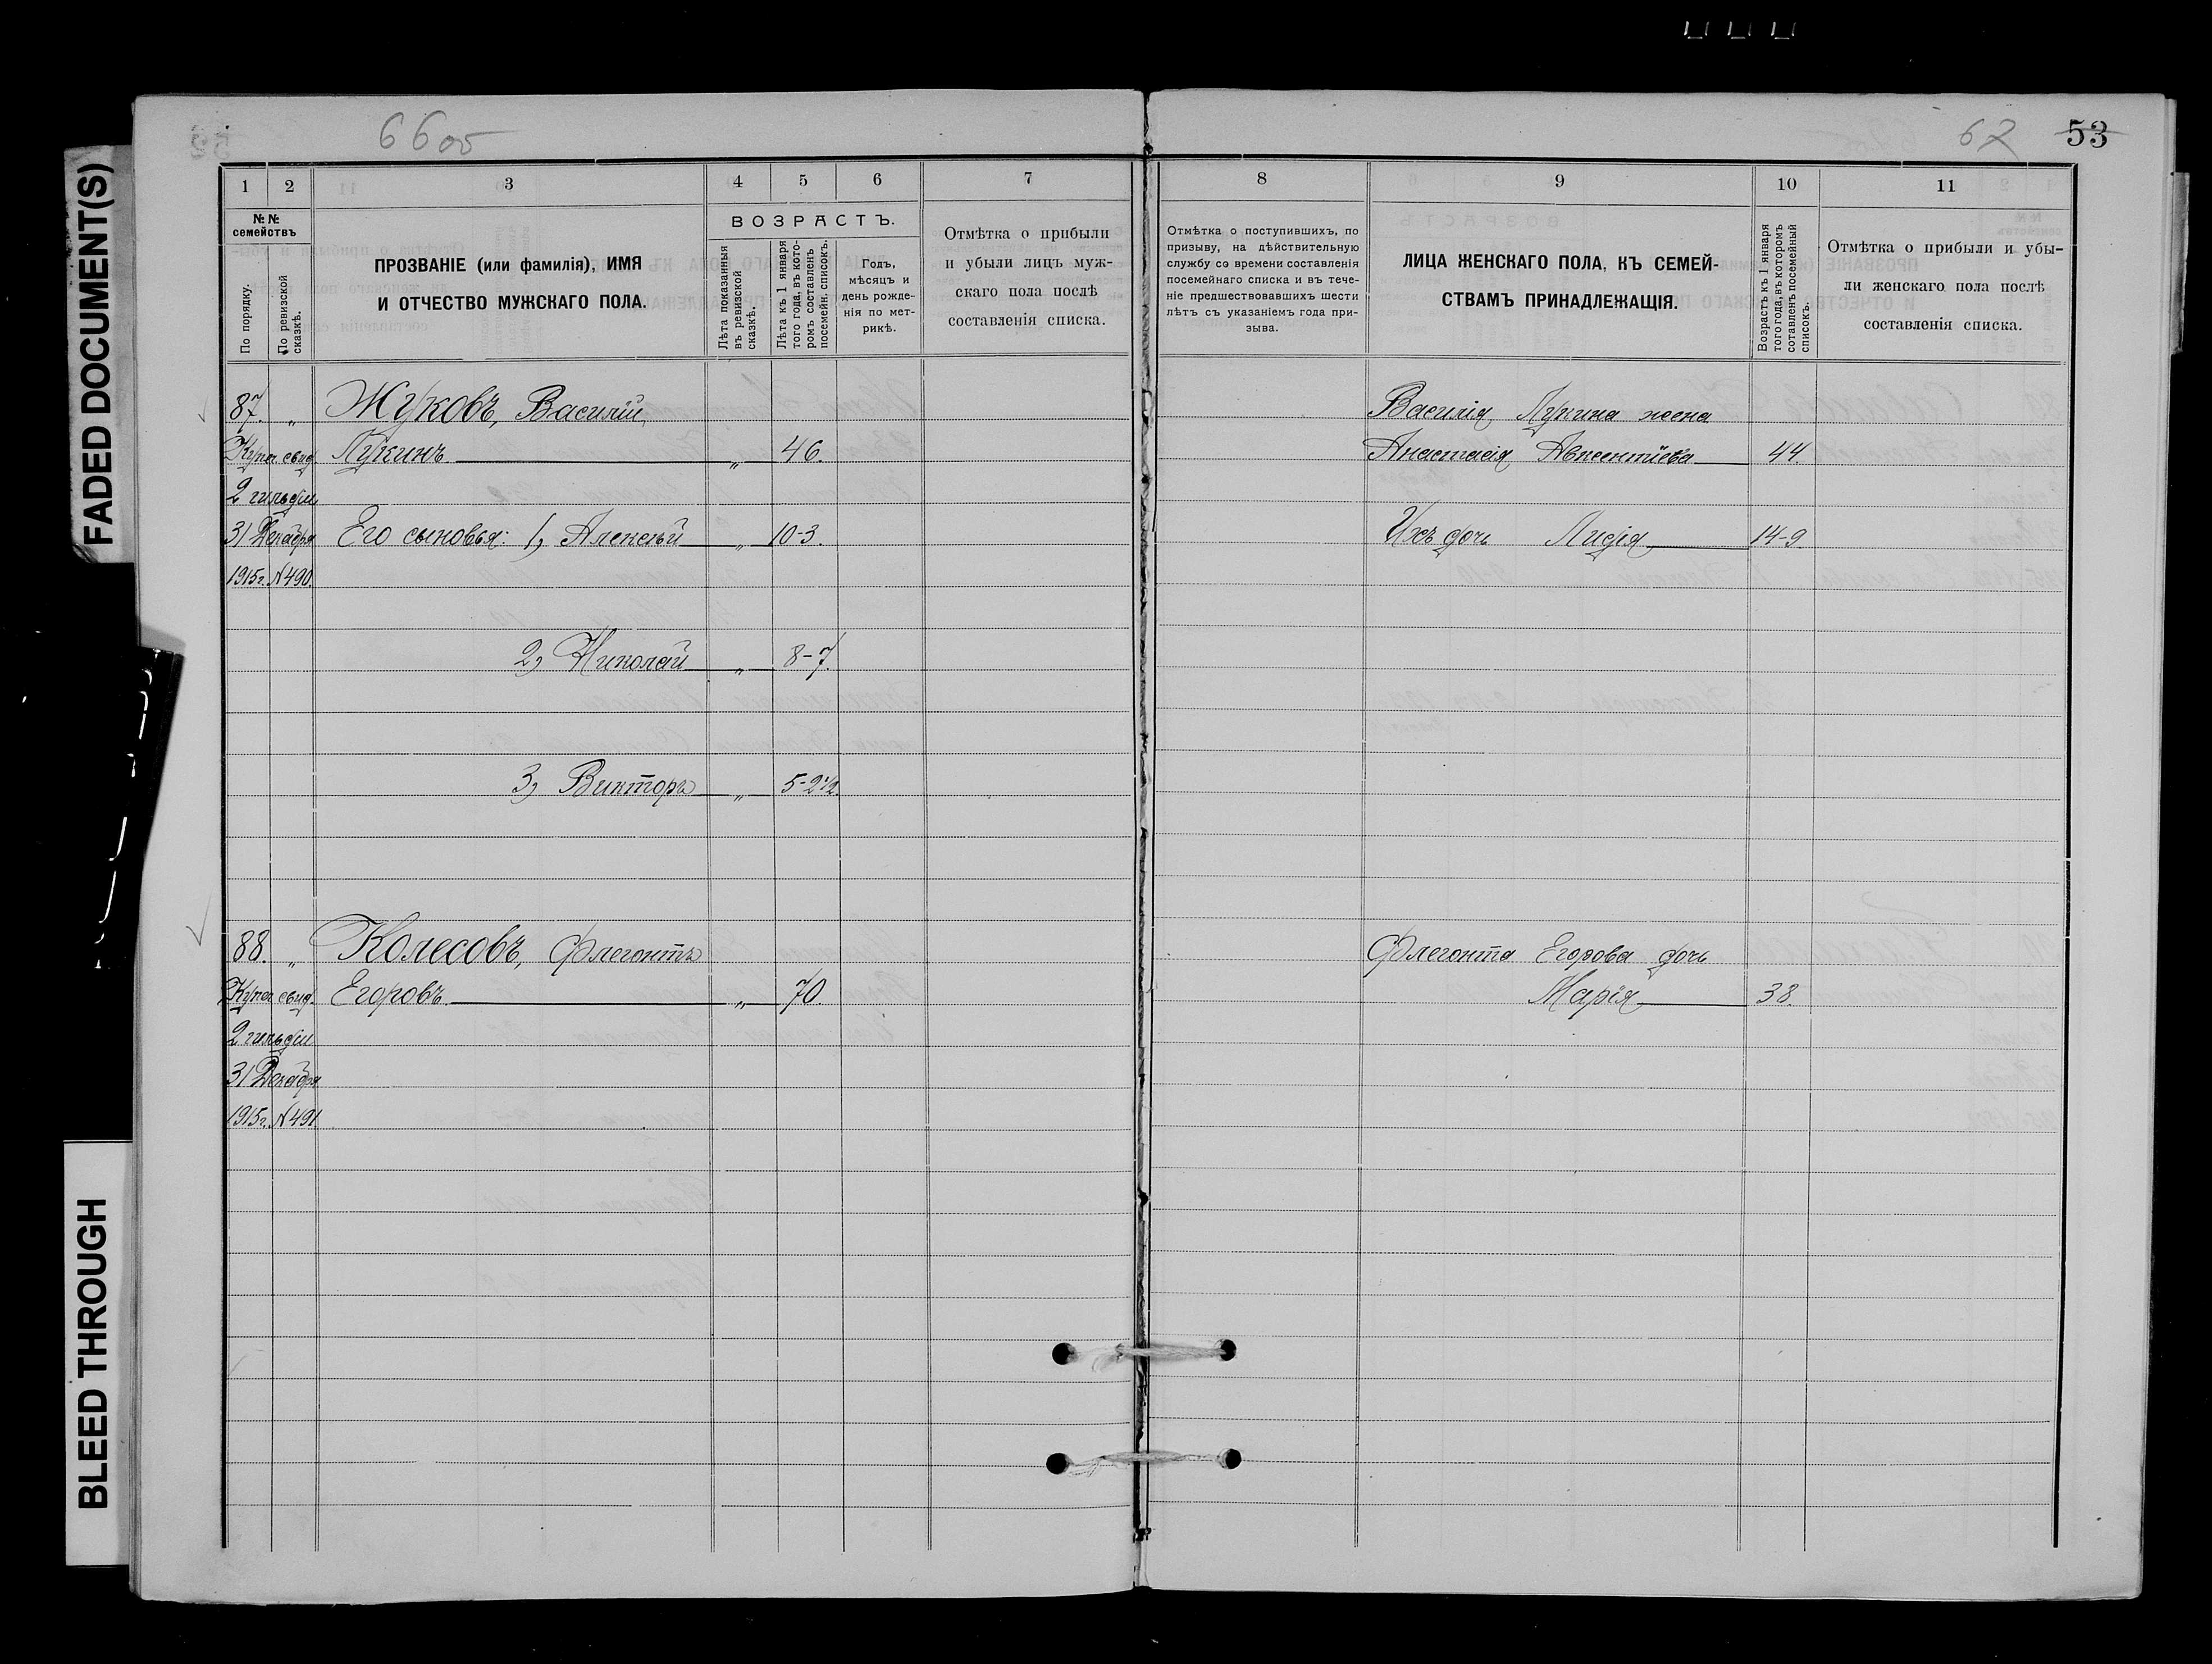 FADED DOCUMENT(S)
BLEED THROUGH
66об
67 53
1 2 3 4 5 6 7
№№ семействъ
По порядку.
По ревизской сказкѣ.
ПРОЗВАНІЕ (или фамилія), ИМЯ
И ОТЧЕСТВО МУЖСКАГО ПОЛА.
ВОЗРАСТЪ.
Лѣта показанныя въ ревизской сказкѣ.
Лѣта къ 1 января того года, въ которомъ составленъ посемейн. списокъ.
Годъ,
мѣсяцъ и
день рожде-
нія по мет-
рикѣ.
Отмѣтка о прибыли
и убыли лицъ муж-
скаго пола послѣ
составленія списка.
87. „ Жуковъ, Василій
Купеч. свид. Лукинъ „ 46.
2 гильдіи
31 Декабря Его сыновья: 1, Алексѣй „ 10-3.
1915г. №490.
2, Николай „ 8-7.
3, Викторъ „ 5-2½
88. „ Колесовъ, Флегонтъ
Купеч. свид. Егоровъ „ 70
2 гильдіи
31 Декабря
1915г. №491.
8 9 10 11
Отмѣтка о поступившихъ, по
призыву, на дѣйствительную
службу со времени составленія
посемейнаго списка и въ тече-
ніе предшествовавшихъ шести
лѣтъ съ указаніемъ года при-
зыва.
ЛИЦА ЖЕНСКАГО ПОЛА, КЪ СЕМЕЙ-
СТВАМЪ ПРИНАДЛЕЖАЩІЯ.
Возрастъ къ 1 января
того года, въ которомъ
составленъ посемейный
списокъ.
Отмѣтка о прибыли и убы-
ли женскаго пола послѣ
составленія списка.
Василія Лукина жена
Анастасія Авксентіева 44.
Ихъ дочь Лидія 14-9.
Флегонта Егорова дочь
Марія 38.